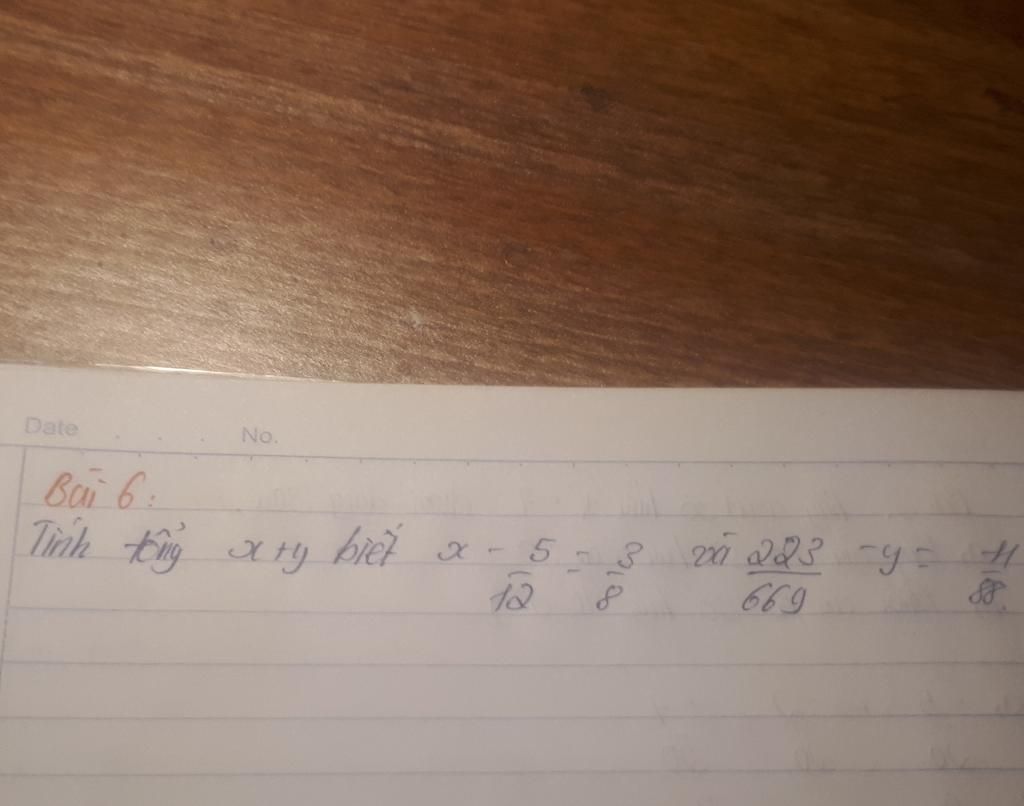 Date . . . No.
Bài 6:
Tính tổng x+y biết x - 5/12 = 3/8 và 223/669 - y = -11/88.